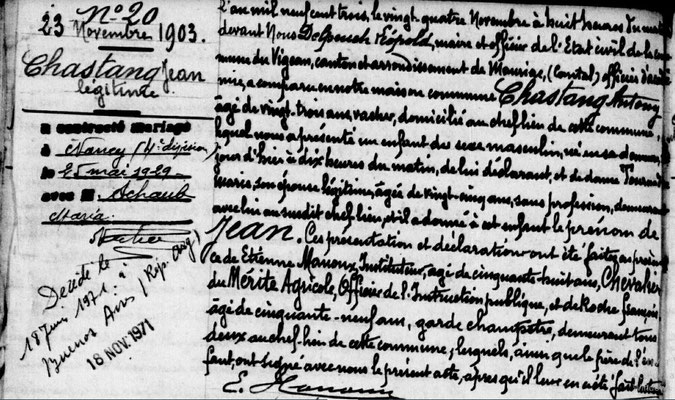 N° 20
23 Novembre 1903.
Chastang Jean
légitime.
a contracté mariage
à Nancy
le 25 mai 1929
avec M. Schaub
Maria.
Décédé le
18 juin 1971 à
Buenos Aires (Rép. Arg)
18 NOV. 1971
L'an mil neuf cent trois, le vingt quatre Novembre à huit heures du matin
devant Nous Léopold, maire et officier de l'Etat civil de la com
mune du Vigean, canton et arrondissement de Mauriac, (Cantal) officier d'acadé
mie, a comparu en notre maison commune Chastang Antony
âgé de vingt-trois ans, vacher, domicilié au chef lieu de cette commune,
lequel nous a présenté un enfant du sexe masculin, né en sa demeure,
jour d'hier à dix heures du matin, de lui déclarant, et de dame
Maria, son épouse légitime, âgée de vingt-cinq ans, sans profession, demeurant
avec lui au susdit chef lieu, et il a donné à cet enfant le prénom de
Jean. Ces présentation et déclaration ont été faites en présen
ce de Etienne Manoux, Instituteur, âgé de cinquante huit ans, Chevalier
du Mérite Agricole, Officier de l'Instruction publique, et de Roche françois
âgé de cinquante-neuf ans, garde champêtre, demeurant tous
deux au chef lieu de cette commune, lesquels, ainsi que le père de l'en
fant, ont signé avec nous le présent acte, après qu'il leur en a été fait lecture